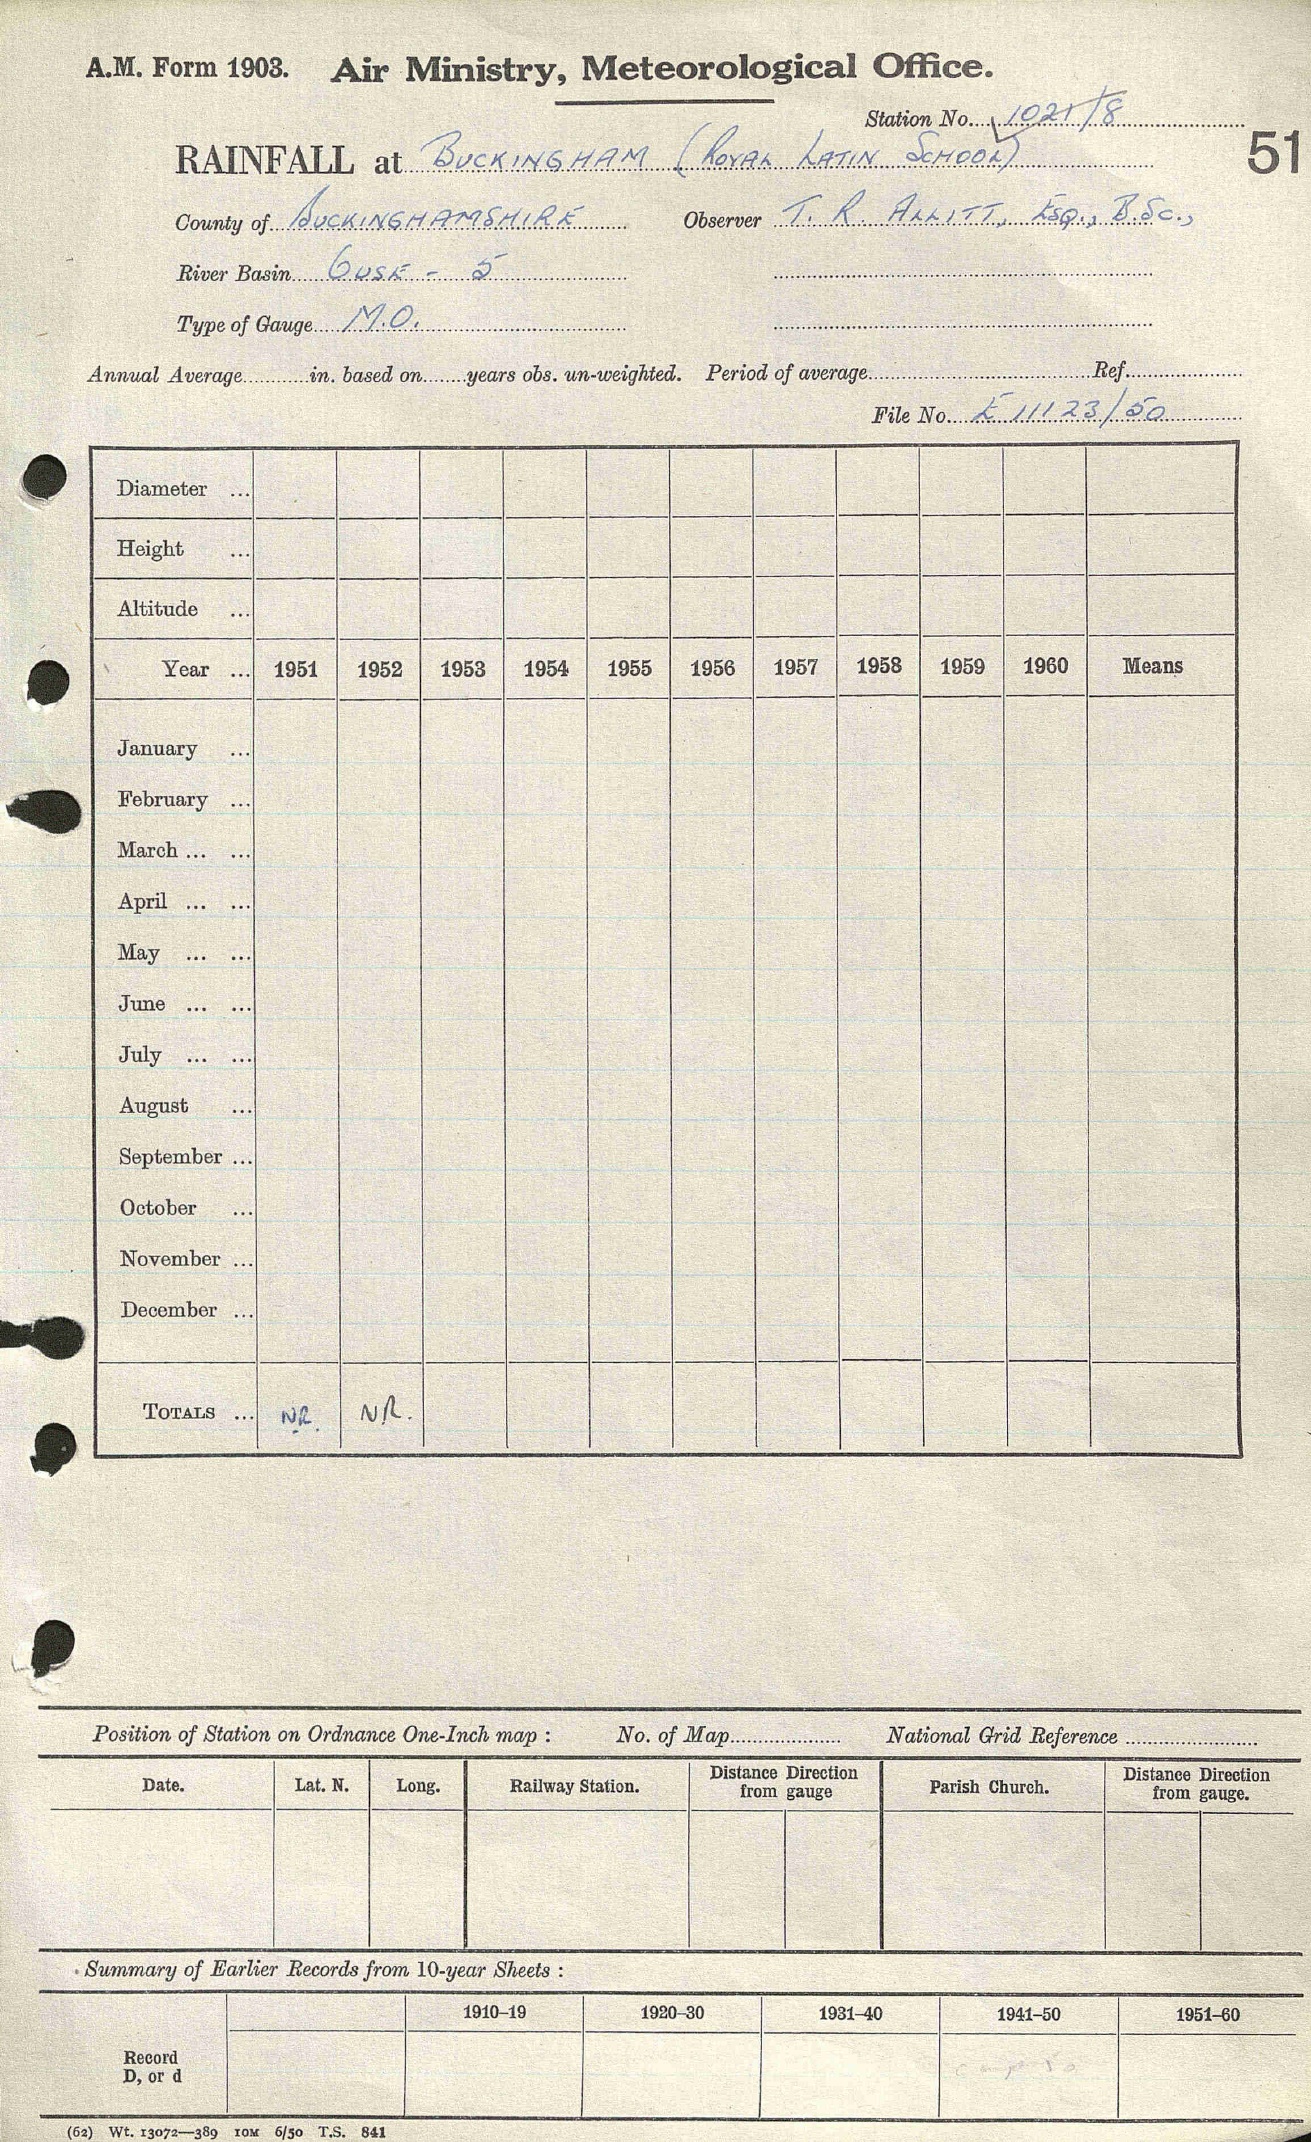 A.M. Form 1903. Air Ministry, Meteorological Office.
Station No. 1021/8
51
RAINFALL at BUCKINGHAM (ROYAL LATIN SCHOOL)
County of BUCKINGHAMSHIRE Observer T. R. ALLITT, ESQ., B.Sc.,
River Basin OUSE - 5
Type of Gauge M.O.
Annual Average in. based on years obs. un-weighted. Period of average Ref.
File No. E 11123/50
Diameter ...
Height ...
Altitude ...
Year ... 1951 1952 1953 1954 1955 1956 1957 1958 1959 1960 Means
January ...
February ...
March ... ...
April ... ...
May ... ...
June ... ...
July ... ...
August ...
September ...
October ...
November ...
December ...
TOTALS ... NR. NR.
Position of Station on Ordnance One-Inch map : No. of Map National Grid Reference
Date. Lat. N. Long. Railway Station. Distance Direction from gauge Parish Church. Distance Direction from gauge.
Summary of Earlier Records from 10-year Sheets :
1910–19 1920–30 1931–40 1941–50 1951–60
Record
D, or d
(62) Wt. 13072—389 10M 6/50 T.S. 841